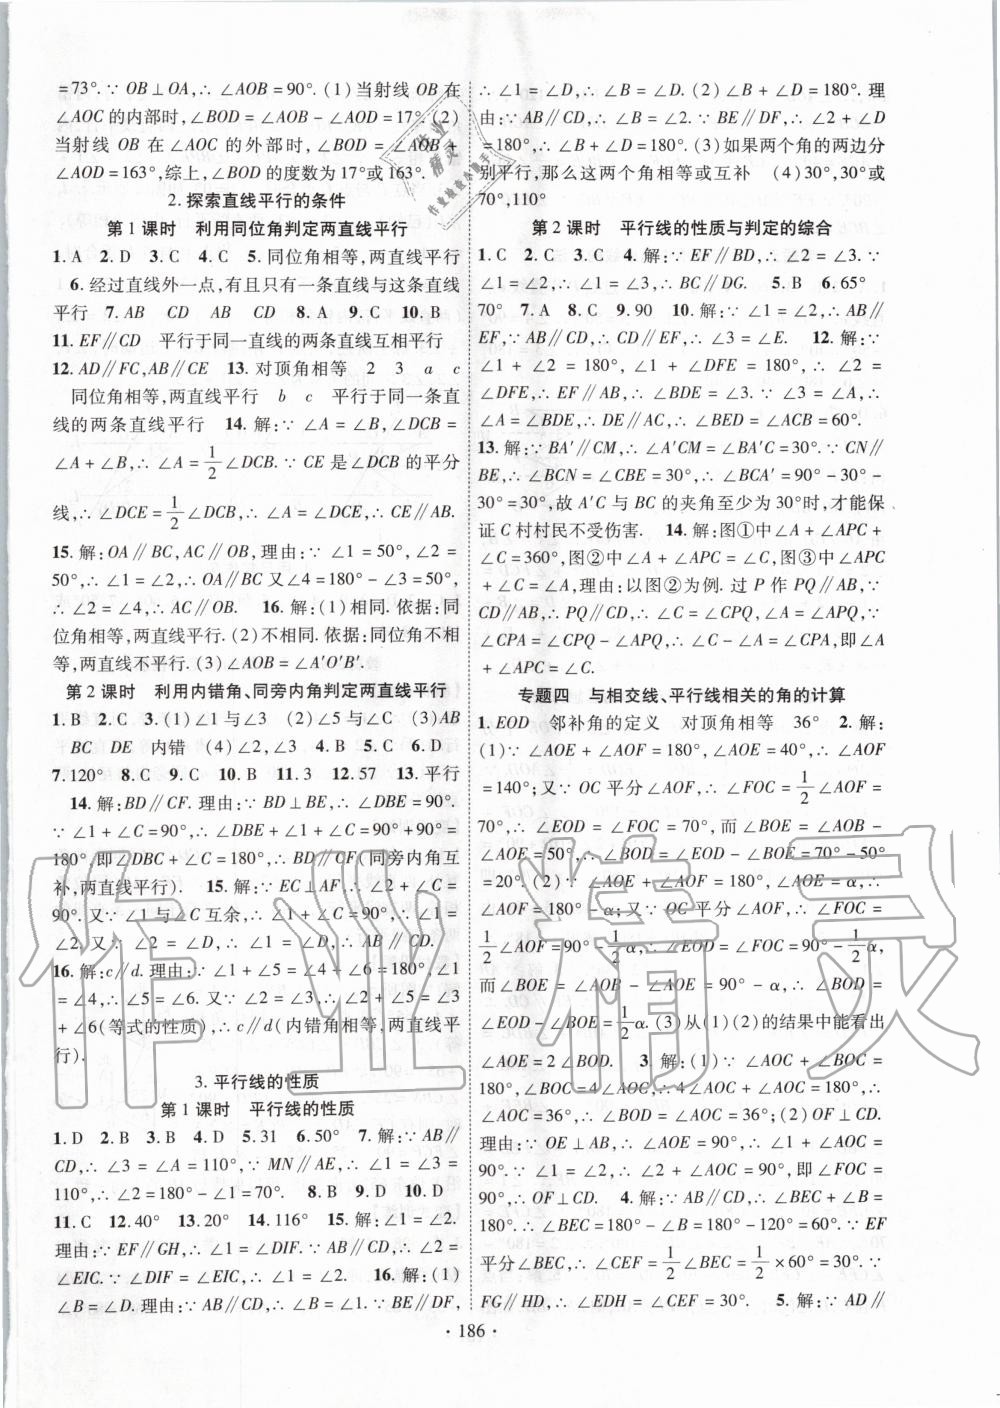 =73°.∵ OB⊥OA,∴ ∠AOB=90°.(1)当射线 OB 在
∠AOC 的内部时,∠BOD=∠AOB-∠AOD=17°.(2)
当射线 OB 在 ∠AOC 的外部时,∠BOD=∠AOB+
∠AOD=163°,综上,∠BOD 的度数为 17°或 163°.
2.探索直线平行的条件
第 1 课时 利用同位角判定两直线平行
1.A 2.D 3.C 4.C 5.同位角相等,两直线平行
6.经过直线外一点,有且只有一条直线与这条直线
平行 7.AB CD AB CD 8.A 9.C 10.B
11.EF∥CD 平行于同一直线的两条直线互相平行
12.AD∥FC,AB∥CE 13.对顶角相等 2 3 a c
同位角相等,两直线平行 b c 平行于同一条直
线的两条直线平行 14.解:∵ ∠A=∠B,∠DCB=
∠A+∠B,∴ ∠A=1/2∠DCB.∵ CE 是∠DCB 的平分
线,∴ ∠DCE=1/2∠DCB,∴ ∠A=∠DCE,∴ CE∥AB.
15.解:OA∥BC,AC∥OB,理由:∵ ∠1=50°,∠2=
50°,∴ ∠1=∠2,∴ OA∥BC 又∠4=180°-∠3=50°,
∴ ∠2=∠4,∴ AC∥OB. 16.解:(1)相同.依据:同
位角相等,两直线平行.(2)不相同.依据:同位角不相
等,两直线不平行.(3)∠AOB=∠A′O′B′.
第 2 课时 利用内错角、同旁内角判定两直线平行
1.B 2.C 3.(1)∠1 与∠3 (2)∠5 与∠C (3)AB
BC DE 内错 (4)∠2,∠3 4.B 5.C 6.D
7.120° 8.C 9.C 10.B 11.3 12.57 13.平行
14.解:BD∥CF.理由:∵ BD⊥BE,∴ ∠DBE=90°.
∵ ∠1+∠C=90°,∴ ∠DBE+∠1+∠C=90°+90°=
180°,即∠DBC+∠C=180°,∴ BD∥CF(同旁内角互
补,两直线平行). 15.解:∵ EC⊥AF,∴ ∠1+∠C=
90°.又∵ ∠1 与∠C 互余,∴ ∠1+∠C=90°,∴ ∠1=
∠2,又∵ ∠D=∠2,∴ ∠1=∠D,∴ AB∥CD.
16.解:c∥d.理由:∵ ∠1+∠5=∠4+∠6=180°,∠1
=∠4,∴ ∠5=∠6.又∵ ∠2=∠3,∴ ∠2+∠5=∠3
+∠6(等式的性质),∴ c∥d(内错角相等,两直线平
行).
3.平行线的性质
第 1 课时 平行线的性质
1.D 2.B 3.B 4.D 5.31 6.50° 7.解:∵ AB∥
CD,∴ ∠3=∠A=110°,∵ MN∥AE,∴ ∠1=∠3=
110°,∴ ∠2=180°-∠1=70°. 8.B 9.D 10.D
11.C 12.40° 13.20° 14.116° 15.解:∠1=∠2.
理由:∵ EF∥GH,∴ ∠1=∠DIF.∵ AB∥CD,∴ ∠2
=∠EIC.∵ ∠DIF=∠EIC,∴ ∠1=∠2. 16.解:(1)
∠B=∠D.理由:∵ AB∥CD,∴ ∠B=∠1.∵ BE∥DF,
∴ ∠1=∠D,∴ ∠B=∠D.(2)∠B+∠D=180°.理
由:∵ AB∥CD,∴ ∠B=∠2.∵ BE∥DF,∴ ∠2+∠D
=180°,∴ ∠B+∠D=180°.(3)如果两个角的两边分
别平行,那么这两个角相等或互补 (4)30°,30°或
70°,110°
第 2 课时 平行线的性质与判定的综合
1.C 2.C 3.C 4.解:∵ EF∥BD,∴ ∠2=∠3.∵
∠1=∠2,∴ ∠1=∠3,∴ BC∥DG. 5.B 6.65°
70° 7.A 8.C 9.90 10.解:∵ ∠1=∠2,∴ AB∥
EF,∵ AB∥CD,∴ EF∥CD,∴ ∠3=∠E. 12.解:∵
∠1+∠2=180°,∠1+∠DFE=180°,∴ ∠2=
∠DFE,∴ EF∥AB,∴ ∠BDE=∠3,∵ ∠3=∠A,∴
∠A=∠BDE,∴ DE∥AC,∴ ∠BED=∠ACB=60°.
13.解:∵ BA′∥CM,∴ ∠A′CM=∠A′=90°.∵ CN∥
BE,∴ ∠BCN=∠CBE=30°,∴ ∠BCA′=90°-30°-
30°=30°,故 A′C 与 BC 的夹角至少为 30°时,才能保
证 C 村村民不受伤害. 14.解:图①中∠A+∠APC
+∠C=360°,图②中∠A+∠APC=∠C,图③中∠APC
+∠C=∠A,理由:以图②为例.过 P 作 PQ∥AB,∵
CD∥AB,∴ PQ∥CD,∴ ∠C=∠CPQ,∠A=∠APQ,∵
∠CPA=∠CPQ-∠APQ,∴ ∠C-∠A=∠CPA,即∠A
+∠APC=∠C.
专题四 与相交线、平行线相关的角的计算
1.EOD 邻补角的定义 对顶角相等 36° 2.解:
(1)∵ ∠AOE+∠AOF=180°,∠AOE=40°,∴ ∠AOF
=140°;又∵ OC 平分∠AOF,∴ ∠FOC=1/2∠AOF=
70°,∴ ∠EOD=∠FOC=70°,而∠BOE=∠AOB-
∠AOE=50°,∴ ∠BOD=∠EOD-∠BOE=70°-50°
=20°.(2)∵ ∠AOE+∠AOF=180°,∠AOE=α,∴
∠AOF=180°-α;又∵ OC 平分∠AOF,∴ ∠FOC=
1/2∠AOF=90°-1/2α,∴ ∠EOD=∠FOC=90°-1/2α,
而∠BOE=∠AOB-∠AOE=90°-α,∴ ∠BOD=
∠EOD-∠BOE=1/2α.(3)从(1)(2)的结果中能看出
∠AOE=2∠BOD. 3.解:(1)∵ ∠AOC+∠BOC=
180°,∠BOC=4∠AOC,∴ ∠AOC+4∠AOC=180°,∴
∠AOC=36°,∴ ∠BOD=∠AOC=36°;(2)OF⊥CD.
理由:∵ OE⊥AB,∴ ∠AOE=90°,∴ ∠1+∠AOC=
90°.∵ ∠1=∠2,∴ ∠2+∠AOC=90°,即∠FOC=
90°,∴ OF⊥CD. 4.解:∵ AB∥CD,∴ ∠BEC+∠B=
180°.∴ ∠BEC=180°-∠B=180°-120°=60°.∵ EF
平分∠BEC,∴ ∠CEF=1/2∠BEC=1/2×60°=30°.∵
FG∥HD,∴ ∠EDH=∠CEF=30°. 5.解:∵ AD∥
· 186 ·
作业精灵
作业精灵
作业检查小助手